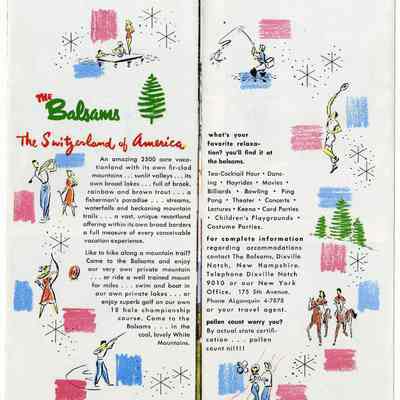 THE
Balsams
The Switzerland of America
An amazing 2300 acre vaca-
tionland with its own fir-clad
mountains . . . sunlit valleys . . . its
own broad lakes . . . full of brook,
rainbow and brown trout . . . a
fishermen's paradise . . . streams,
waterfalls and beckoning mountain
trails . . . a vast, unique resortland
offering within its own broad borders
a full measure of every conceivable
vacation experience.
Like to hike along a mountain trail?
Come to the Balsams and enjoy
our very own private mountain
. . . or ride a well trained mount
for miles . . . swim and boat in
our own private lakes . . . or
enjoy superb golf on our own
18 hole championship
course. Come to the
Balsams . . . in the
cool, lovely White
Mountains.
what's your
favorite relaxa-
tion? you'll find it at
the balsams.
Tea-Cocktail Hour • Danc-
ing • Hayrides • Movies •
Billiards • Bowling • Ping
Pong • Theater • Concerts •
Lectures • Keno • Card Parties
• Children's Playgrounds •
Costume Parties.
for complete information
regarding accommodations
contact The Balsams, Dixville
Notch, New Hampshire.
Telephone Dixville Notch
9010 or our New York
Office, 175 5th Avenue.
Phone Algonquin 4-7878
or your travel agent.
pollen count worry you?
By actual state certifi-
cation . . . pollen
count nil!!!